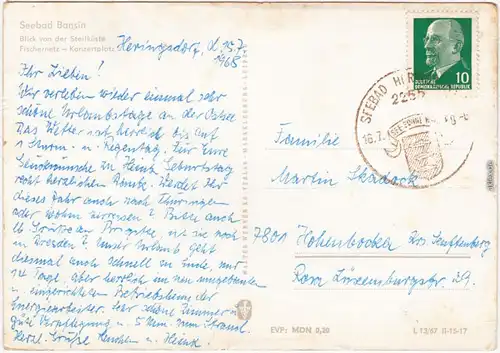 Seebad Bansin
Blick von der Steilküste
Fischernetz - Konzertplatz
Heringsdorf, d. 15.7.
1968
Ihr Lieben!
Wir verleben wieder einmal sehr
schöne Urlaubstage an der Ostsee
Das Wetter ist herrlich bis auf
1 Sturm- u. Regentag. Für Eure
Glückwünsche zu Heinz Geburtstag
recht herzlichen Dank. Werdet Ihr
dieses Jahr auch nach Thüringen
oder wohin verreisen? Bitte auch
lb. Grüße an Brigitte, ist sie noch
in Dresden? Unser Urlaub geht
diesmal auch schnell zu Ende, nur
14 Tage, aber herrlich im neu umgebauten
u. eingerichteten Betriebsheim der
Energiearbeiter. Sehr schöne Zimmer u.
gute Verpflegung u. 5 Min. zum Strand.
Herzl. Grüße Lenchen u. Heinz.
DEUTSCHE
DEMOKRATISCHE REPUBLIK
10
SEEBAD
2255
16.7.
Familie
Martin Skadock
7801 Hohenbocka Krs. Senftenberg
Rosa Luxemburgstr. 29.
EVP: MDN 0,20
L 13/67 II-15-17